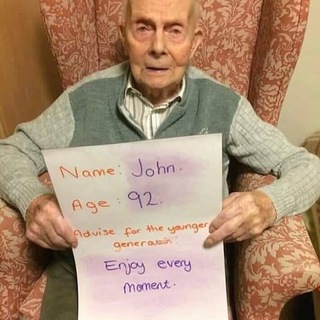 Name: John.
Age: 92.
Advise for the younger
generation:
Enjoy every
moment.